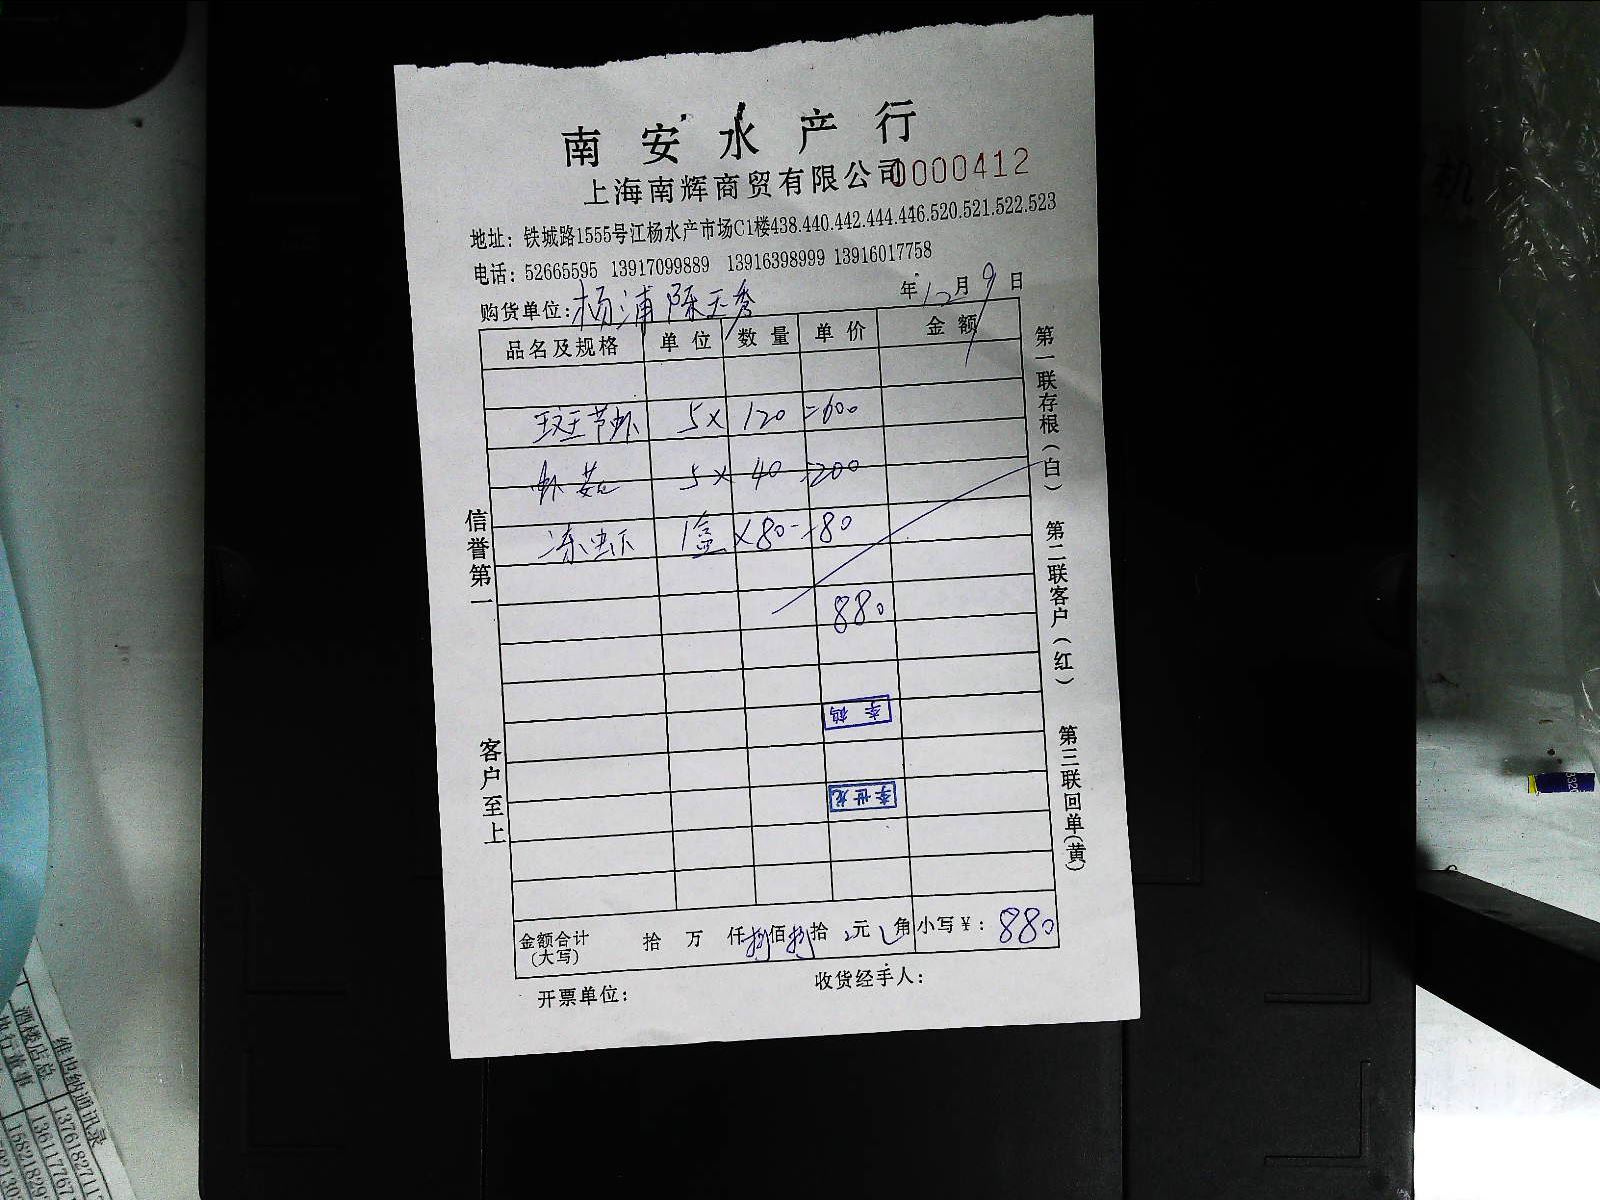 南安水产行
上海南辉商贸有限公司 0000412
地址：铁城路1555号江杨水产市场C1楼438.440.442.444.446.520.521.522.523
电话：52665595 13917099889 13916398999 13916017758
购货单位：杨浦陈玉秀 年12月9日
品名及规格 单位 数量 单价 金额
斑节虾 5× 120 =600
虾菇 5× 40 =200
冻虾 1盒 ×80 =80
880
李鹤
李世龙
金额合计(大写) 拾 万 仟 捌佰捌拾 元 角 小写￥：880
开票单位： 收货经手人：
信誉第一
客户至上
第一联存根(白)
第二联客户(红)
第三联回单(黄)
维也纳通讯录
酒楼店总
执行董事